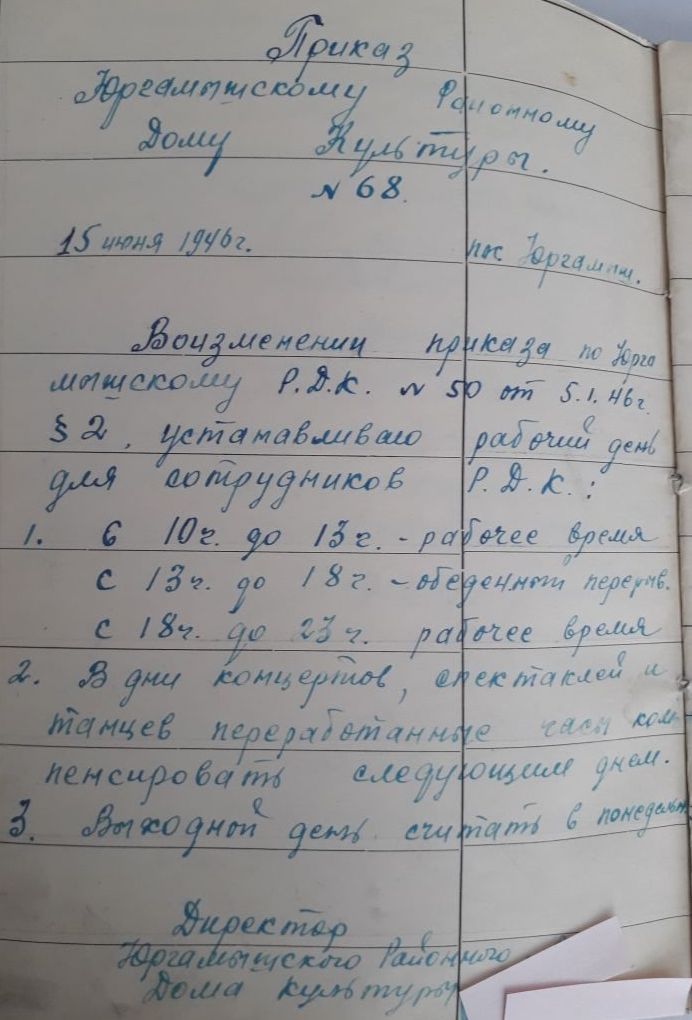 Приказ
Юргамышскому Районному
Дому Культуры.
N 68.
15 июня 1946г. пос. Юргамыш.
Воизменении приказа по Юрга
мышскому Р.Д.К. N 50 от 5.1.46г.
§ 2, устанавливаю рабочий день
для сотрудников Р.Д.К.:
1. С 10ч. до 13ч. - рабочее время
с 13ч. до 18ч. - обеденный перерыв.
с 18ч. до 23ч. рабочее время
2. В дни концертов, спектаклей и
танцев переработанные часы ком
пенсировать следующим днем.
3. Выходной день считать в понедельн
Директор
Юргамышского Районного
Дома культуры